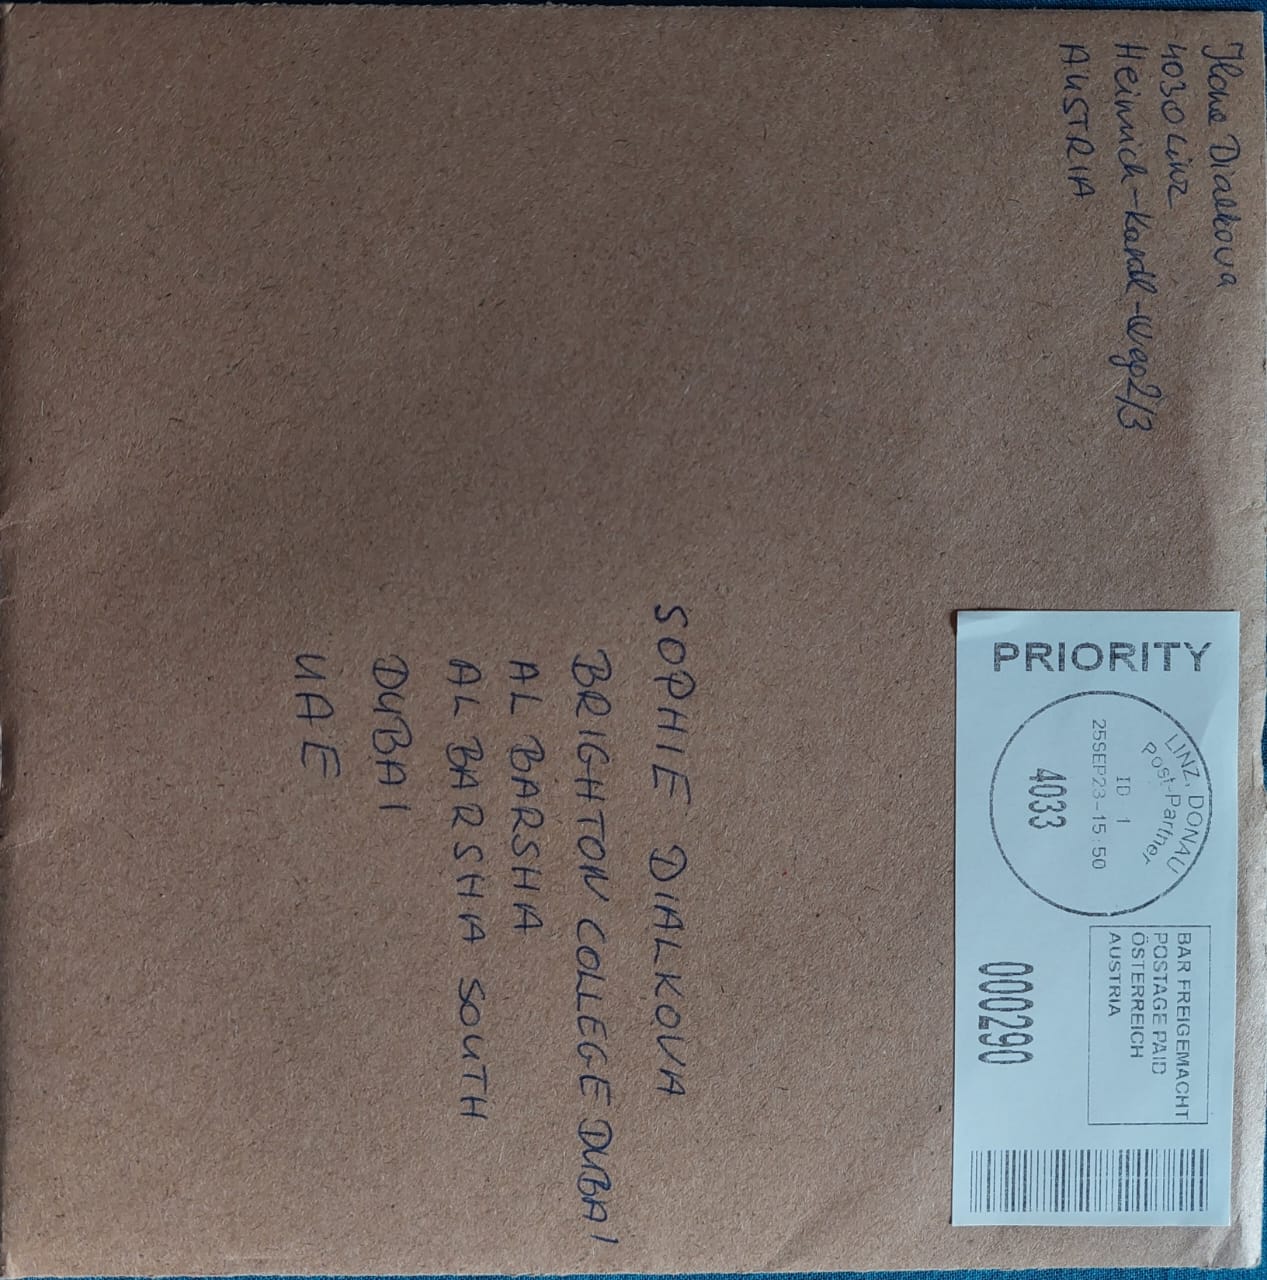 Ilona Dialkova
4030 Linz
Heinrich-Kandl-Weg 2/3
AUSTRIA
PRIORITY
LINZ, DONAU
Post-Partner
ID 1
25SEP23-15:50
4033
BAR FREIGEMACHT
POSTAGE PAID
ÖSTERREICH
AUSTRIA
000290
SOPHIE DIALKOVA
BRIGHTON COLLEGE DUBAI
AL BARSHA
AL BARSHA SOUTH
DUBAI
UAE